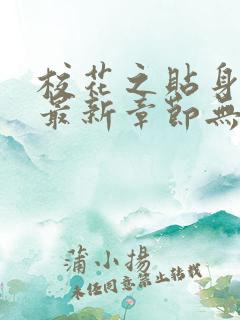 校花之貼身
最新章節無
蒲小揚
未经同意禁止转载